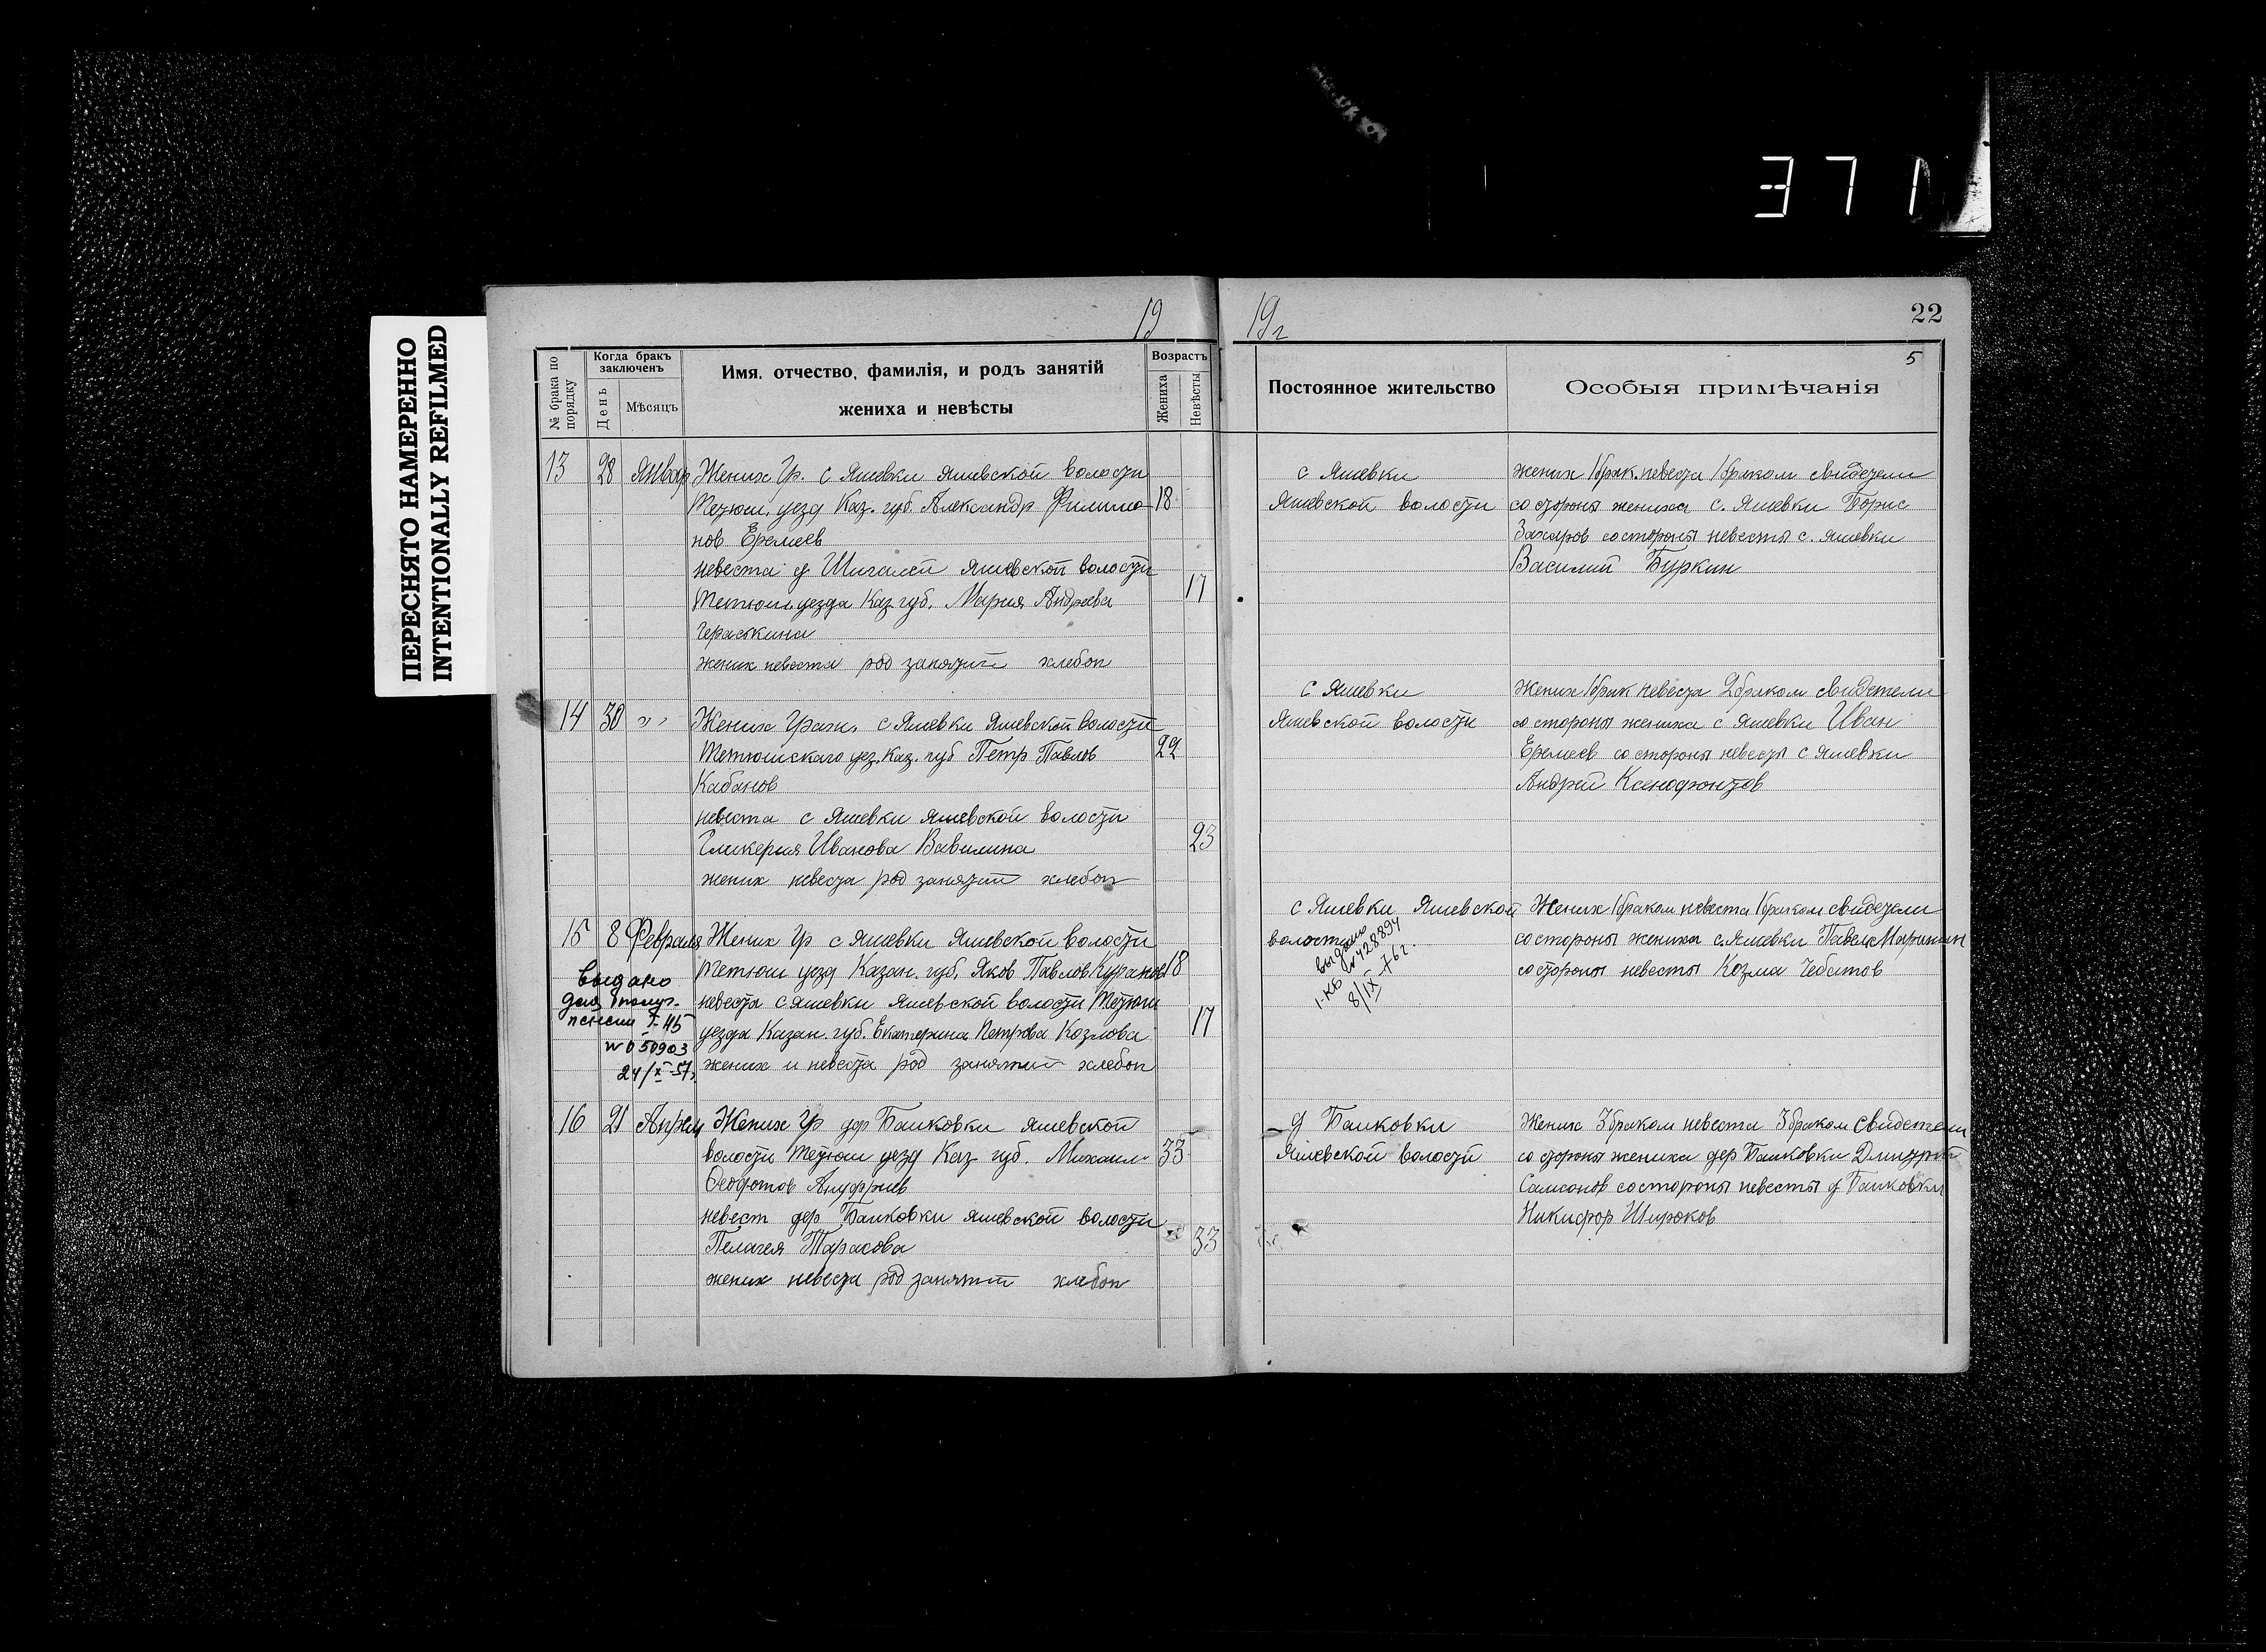 371
ПЕРЕСНЯТО НАМЕРЕННО
INTENTIONALLY REFILMED
19
19г
22
5
№ брака по порядку
Когда бракъ заключенъ
День
Мѣсяцъ
Имя, отчество, фамилія, и родъ занятій
жениха и невѣсты
Возрастъ
Жениха
Невѣсты
Постоянное жительство
Особыя примѣчанія
13 28 Январ Жених Гр. с Яшевки Яшевской волости
Тетюш. уезд Каз. губ. Александр Филимо 18
нов Еремеев
невеста д Шигалей Яшевской волости
Тетюш. уезда Каз. губ. Мария Андреева 17
Гераскина
жених невеста род занятий хлебоп
с Яшевки
Яшевской волости
Жених 1 брак. невеста 1 браком свидетели
со стороны жениха с. Яшевки Борис
Захаров со стороны невесты с. Яшевки
Василий Буркин
14 30 " " Жених Граж. с Яшевки Яшевской волости
Тетюшскаго уез. Каз. губ Петр Павлов 22
Кабанов
невеста с Яшевки Яшевской волости
Гликерия Иванова Вавилина 23
жених невеста род занятий хлебоп
с Яшевки
Яшевской волости
Жених 1 брак невеста 2 браком свидетели
со стороны жениха с Яшевки Иван
Еремеев со стороны невесты с Яшевки
Андрей Ксенофонтов
15 8 Февраля Жених Гр с Яшевки Яшевской волости
Тетюш уезд Казан. губ. Яков Павлов Куранов 18
невеста с Яшевки Яшевской волости Тетюш
уезда Казан. губ. Екатерина Петрова Козлова 17
жених и невеста род занятий хлебоп
выдано
для получ.
пенсии I-45
№ 050903
24/X-57г
с Яшевки Яшевской
волости
выдано
I-КБ № 428894
8/IX-76г.
Жених 1 браком невеста 1 браком свидетели
со стороны жениха с. Яшевки Павел
со стороны невесты Козма Чебатов
16 21 Апрел Жених Гр дер Башковки Яшевской
волости Тетюш уезд Каз губ. Михаил 33
Феофотов Ануфриев
невест дер Башковки Яшевской волости
Пелагея Тарасова 33
жених невеста род занятий хлебоп
д Башковки
Яшевской волости
Жених 3 браком невеста 3 браком свидетели
со стороны жениха дер Башковки Дмитрий
Самсонов со стороны невесты д Башковки
Никифор Широков